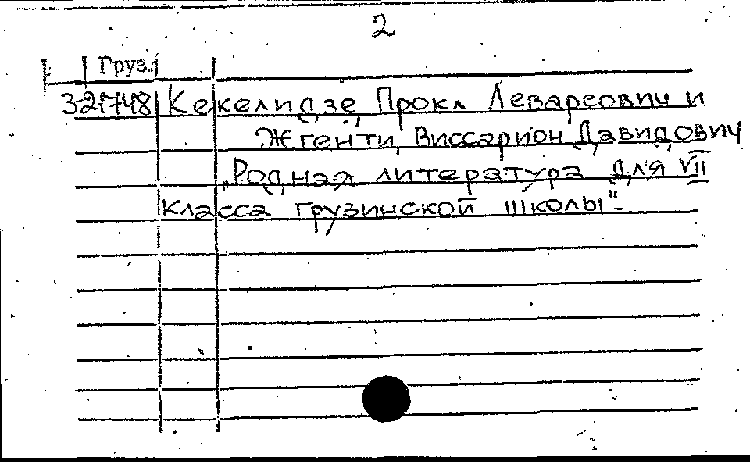 2
Груз.
32748 Кекелидзе, Прокл Леварсович и
Жгенти, Виссарион Давидович
„Родная литература для VII
класса грузинской школы".